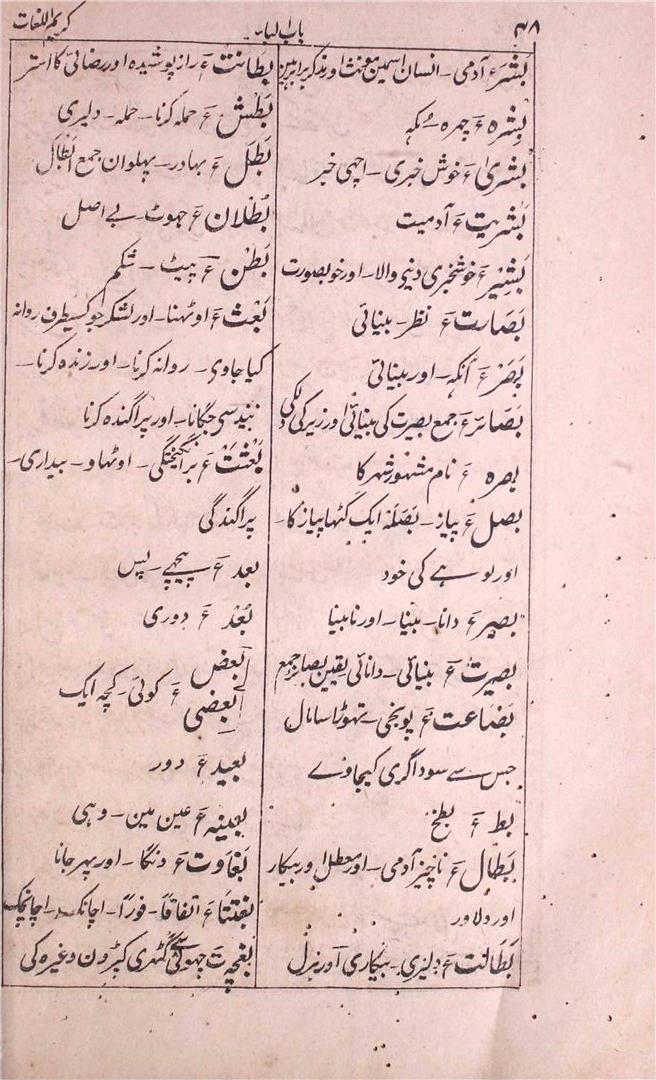 ۴۸
باب البا
کریم اللغات
بَشَر ء آدمی۔ انسان اسمین مونث اور مذکر برابر ہین
بشرہ ء چہرہ۔ مُکہہ
بشریٰ ء خوش خبری۔ اچھی خبر
بَشریت ء آدمیت
بَشِیر ء خوشخبری دینی والا۔ اور خوبصورت
بَصَارت ء نظر۔ بینائی
بَصَر ء آنکہہ۔ اور بینائی
بَصَائر ء جمع بصیرت کی بینائی اور زیرکی دلکی
بصرہ ء نام مشہور شہر کا
بصل ء پیاز۔ بَصَلَہ ایک گٹھا پیاز کا۔
اور لوہے کی خود
بصیر ء دانا۔ بینا۔ اور نابینا
بصیرت ء بینائی۔ دانائی یقین بصائر جمع
بَضاعت ء پونجی۔ تہوڑا سا مال
جس سے سوداگری کیجاوے
بط ء بطخ
بَطال ء ناچیز آدمی۔ اور معطل اور بیکار
اور دلاور
بَطَالت ء دلیری۔ بیکاری اور ہزل
بِطَانت ء راز پوشیدہ اور رضائی کا استر
بَطش ء حملہ کرنا۔ حملہ۔ دلیری
بَطَل ء بہادر۔ پہلوان جمع ابطال
بُطْلان ء جہوٹ۔ بے اصل
بَطْن ء پیٹ۔ شکم
بَعْث ء اوٹہنا۔ اور لشکر جو کسیطرف روانہ
کیا جاوی۔ روانہ کرنا۔ اور زندہ کرنا۔
نیند سی جگانا۔ اور پراگندہ کرنا
بَعْثت ء برانگیختگی۔ اوٹھاو۔ بیداری۔
پراگندگی
بعد ء پیچہے۔ پس
بُعْد ء دوری
بَعض
بعضی ء کوئی۔ کچہہ ایک
بعید ء دور
بعینہ ء عین مین۔ وہی
بَغاوت ء دنگا۔ اور پہر جانا
بغتتاً ء اتفاقاً۔ فوراً۔ اچانک۔ اچانچک
بغچہ ت چہوٹی گٹھری کپڑون وغیرہ کی